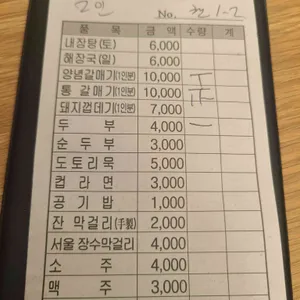 2인 No. 천 1-2
품 목 금 액 수량 계
내장탕(토) 6,000
해장국(일) 6,000
양념갈매기(1인분) 10,000 丅
통 갈매기(1인분) 10,000 正
돼지껍데기(1인분) 7,000
두 부 4,000 一
순 두 부 3,000
도 토 리 묵 5,000
컵 라 면 3,000
공 기 밥 1,000
잔 막걸리(手製) 2,000
서울 장수막걸리 4,000
소 주 4,000
맥 주 3,000